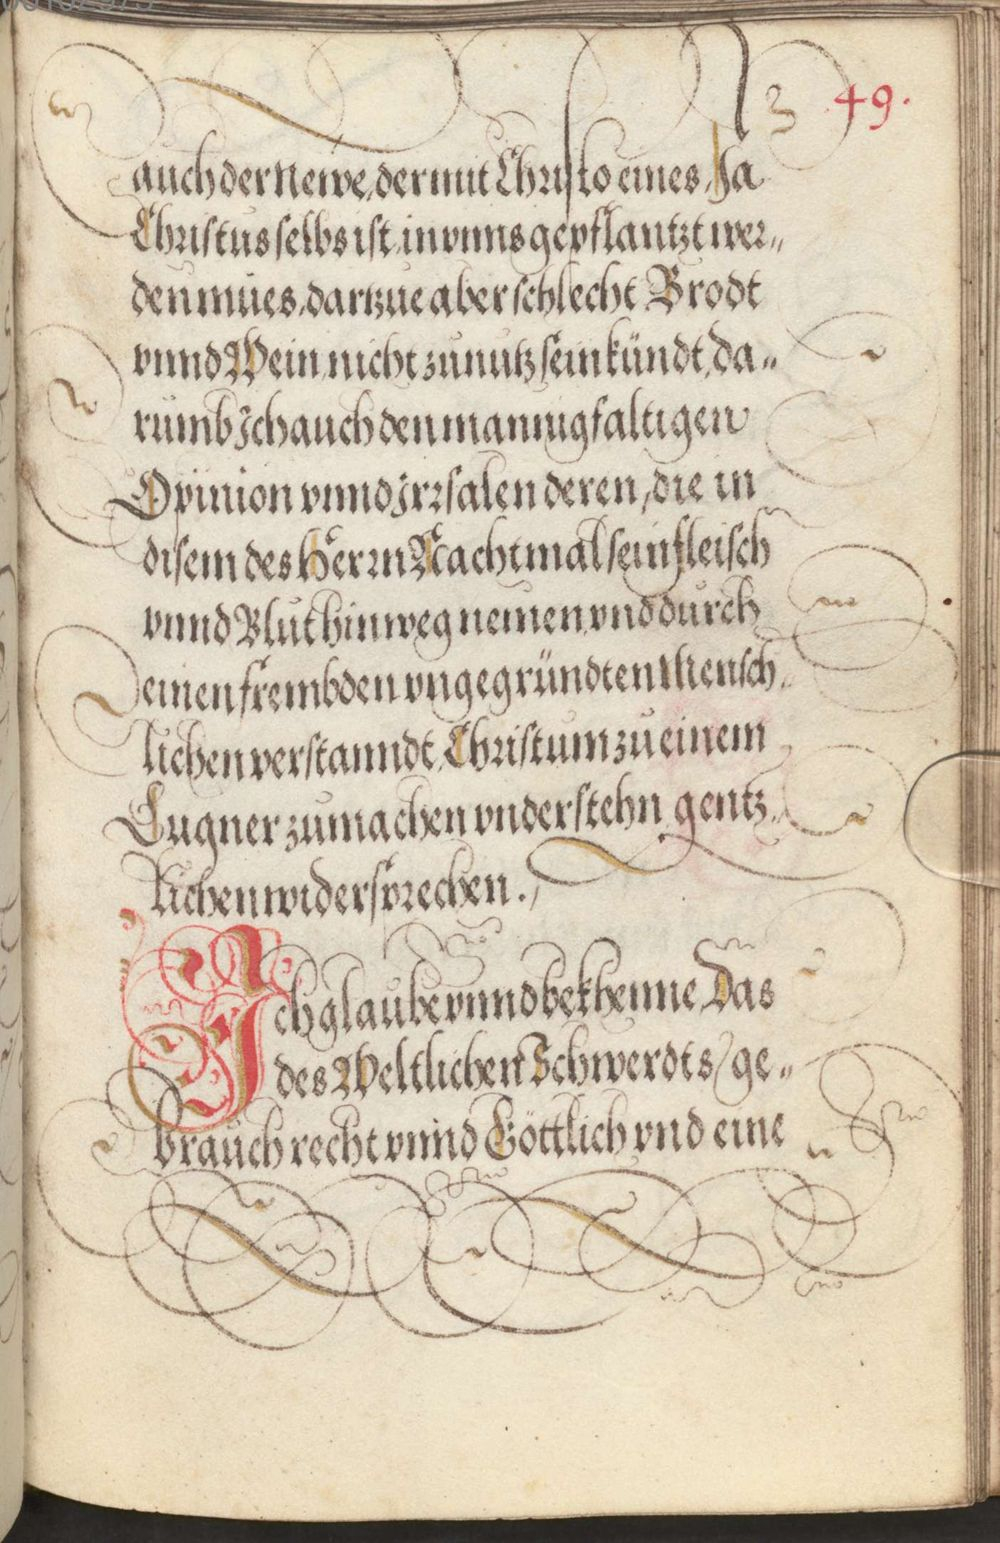 49.
auch der Newe, der mit Christo eines, Ja
Christus selbs ist, in vnns gepflantzt wer„
den mües, dartzue aber schlecht Brodt
vnnd Wein nicht zu nutz sein kündt, da„
rumb Ich auch den mannigfaltigen
Opinion vnnd Irrsalen deren, die in
disem des Herrn Nachtmal sein fleisch
vnnd Bluthinweg nemen vnd durch
einen frembden vngegründten Mensch„
lichen verstanndt, Christum zu einem
Lugner zumachen vnderstehn gentz„
lichen widersprechen.
Ich glaube vnnd bekhenne, Das
des Weltlichen Schwerdts ge„
brauch recht vnnd Göttlich vnd eine